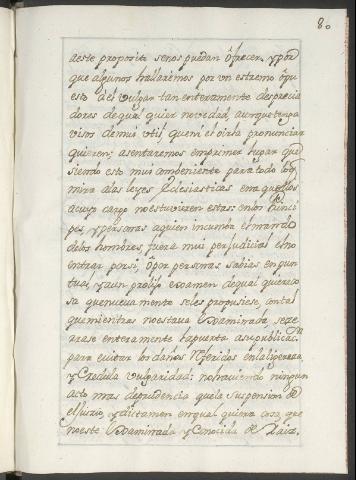 80
aeste proposito senos puedan ofrecer. y por
que algunos hallarémos por vn estremo opu
esto del vulgar tan enteramente desprecia
dores de qual quier novedad, aunque tenga
visos de mui vtil, que ni el oirla pronunciar
quieren; asentaremos en primer lugar que
siendo esto mui combeniente para todo lo q
mira alas leyes Eclesiasticas en aquellos
acuyo cargo no estuvieren estas: en los Princi
pes, y personas aquien incumbe el mando
delos hombres, fuera mui perjudicial el no
entrar por si, ò por personas sabias en pun
tual, y aun prolijo examen de qual quier co
sa que nueva mente se les propusiese, con tal
que mientras no estava examinada, se ze
rrase enteramente la puerta a su publicacn.
para evitar los daños referidos en la ligereza,
y credula vulgaridad: no haviendo ningun
acto mas de prudencia que la suspension de
el juizio, y dictamen en qual quiera cosa que
no este examinada y conocida de raiz.